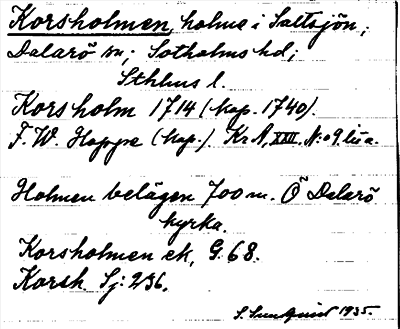 Korsholmen, holme i Saltsjön;
Dalarö sn; Sotholms hd;
Sthlms l.
Korsholm 1714 (Kop. 1740).
F. W. Hoppe (Kop.). Kr A, XXII, N:o 9, litt a.
Holmen belägen 700 m. Ö Dalarö
kyrka.
Korsholmen ek, G. 68.
Korsh. Sj: 236.
S. Sundquist 1935.